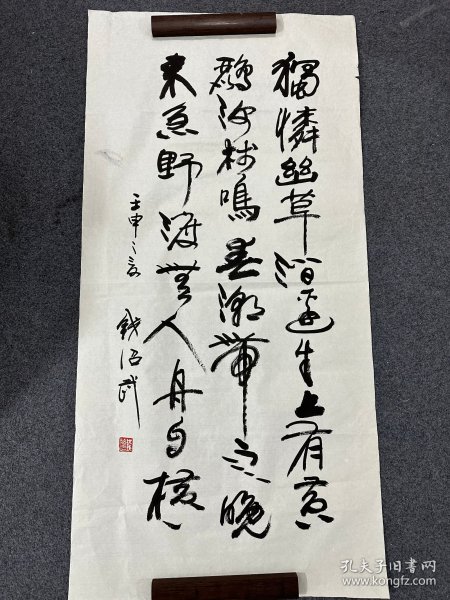 獨憐幽草澗邊生上有黃
鸝深樹鳴春潮帶雨晚
來急野渡無人舟自橫
壬申之夏 錢紹武
孔夫子旧书网
www.kongfz.com